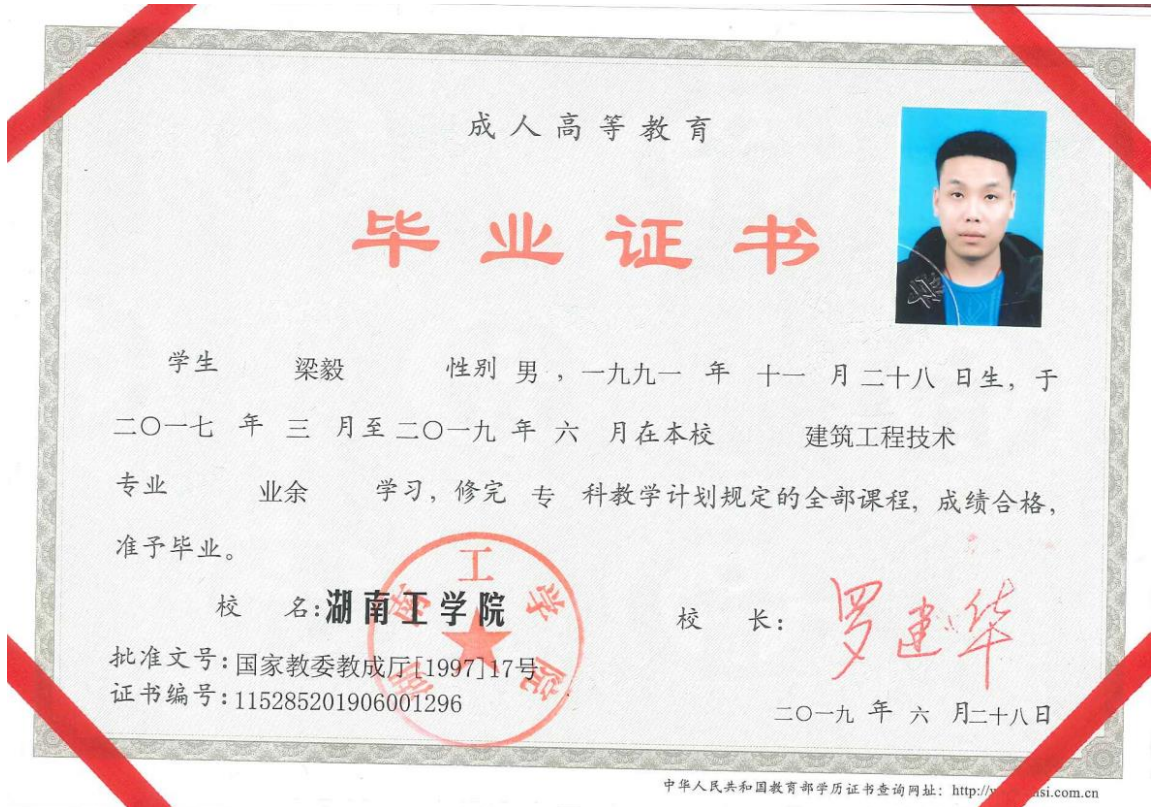 成人高等教育
毕业证书
学生 梁毅 性别 男 ，一九九一 年 十一 月 二十八 日生，于
二〇一七 年 三 月至 二〇一九 年 六 月在本校 建筑工程技术
专业 业余 学习，修完 专 科教学计划规定的全部课程，成绩合格，
准予毕业。
校 名：湖南工学院
校 长：罗建华
批准文号：国家教委教成厅[1997]17号
证书编号：115285201906001296
二〇一九 年 六 月二十八日
湖南工学院
学
中华人民共和国教育部学历证书查询网址：http://w si.com.cn